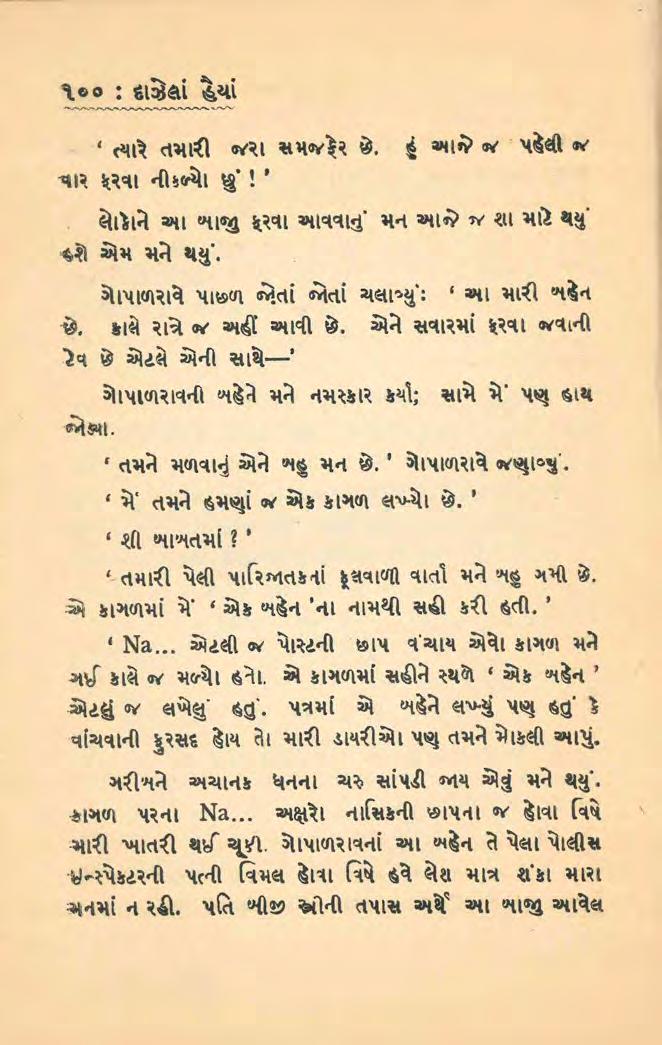 ૧૦૦ : દાઝેલાં હૈયાં
‘ ત્યારે તમારી જરા સમજફેર છે. હું આજે જ પહેલી જ
વાર ફરવા નીકળ્યો છું ! ’
લોકોને આ બાજુ ફરવા આવવાનું મન આજે જ શા માટે થયું
હશે એમ મને થયું.
ગોપાળરાવે પાછળ જોતાં જોતાં ચલાવ્યું: ‘ આ મારી બહેન
છે. કાલે રાત્રે જ અહીં આવી છે. એને સવારમાં ફરવા જવાની
ટેવ છે એટલે એની સાથે—’
ગોપાળરાવની બહેને મને નમસ્કાર કર્યા; સામે મેં પણ હાથ
જોડ્યા.
‘ તમને મળવાનું એને બહુ મન છે. ’ ગોપાળરાવે જણાવ્યું.
‘ મેં તમને હમણાં જ એક કાગળ લખ્યો છે. ’
‘ શી બાબતમાં ? ’
‘ તમારી પેલી પારિજાતકનાં ફૂલવાળી વાર્તા મને બહુ ગમી છે.
એ કાગળમાં મેં ‘ એક બહેન ’ના નામથી સહી કરી હતી. ’
‘ Na... એટલી જ પોસ્ટની છાપ વંચાય એવો કાગળ મને
ગઈ કાલે જ મળ્યો હતો. એ કાગળમાં સહીને સ્થળે ‘ એક બહેન ’
એટલું જ લખેલું હતું. પત્રમાં એ બહેને લખ્યું પણ હતું કે
વાંચવાની ફુરસદ હોય તો મારી ડાયરીઓ પણ તમને મોકલી આપું.
ગરીબને અચાનક ધનના ચરુ સાંપડી જાય એવું મને થયું.
કાગળ પરના Na... અક્ષરો નાસિકની છાપના જ હોવા વિષે
મારી ખાતરી થઈ ચૂકી. ગોપાળરાવનાં આ બહેન તે પેલા પોલીસ
ઇન્સ્પેકટરની પત્ની વિમલ હોવા વિષે હવે લેશ માત્ર શંકા મારા
મનમાં ન રહી. પતિ બીજી સ્ત્રીની તપાસ અર્થે આ બાજુ આવેલ